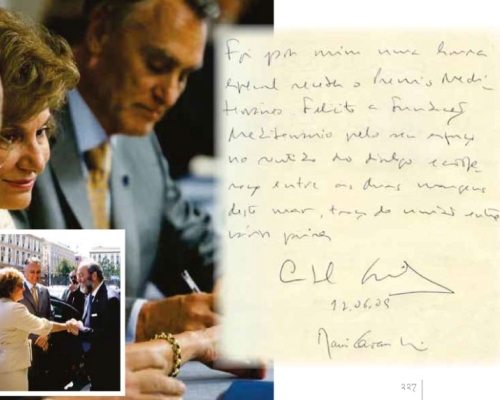 Foi para mim uma honra
especial receber o Prémio Medi-
terrâneo. Felicito a Fundação
Mediterrâneo pelo seu esforço
no sentido do diálogo e coope-
ração entre as duas margens
deste mar, traço de união entre
vários países
12.06.09
Maria Cavaco
227